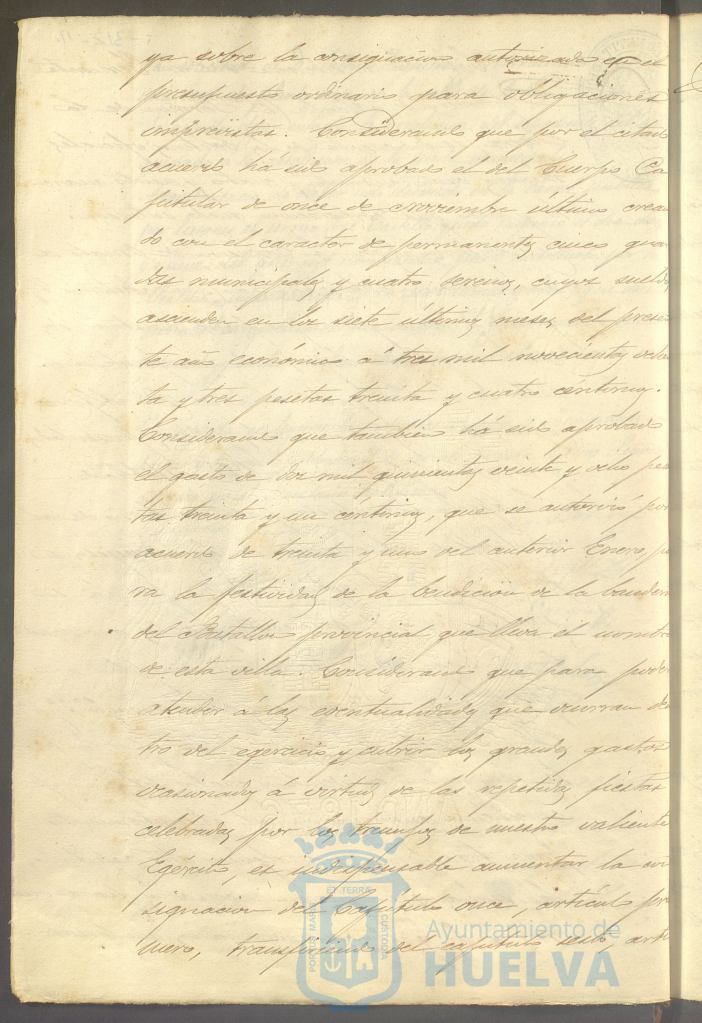 ya sobre la consignacion autorizada en el
presupuesto ordinario para obligaciones
imprevistas. Considerando que por el citado
acuerdo há sido aprobado el del Cuerpo Ca
pitular de once de Noviembre último crean
do con el caracter de permanentes cinco guar
dias municipales y cuatro serenos, cuyos sueldos
ascienden en los siete últimos meses del presen
te año económico á tres mil novecientas ochen
ta y tres pesetas treinta y cuatro céntimos.
Considerando que tambien há sido aprobado
el gasto de dos mil quinientas veinte y ocho pese
tas treinta y un céntimos, que se autorizó por
acuerdo de treinta y uno del anterior Enero, pa
ra la festividad de la bendicion de la bandera
del Batallon provincial que lleva el nombre
de esta villa. Considerando que para poder
atender á las eventualidades que ocurran den
tro del egercicio y cubrir los grandes gastos
ocasionados á virtud de las repetidas fiestas
celebradas por los triunfos de nuestro valiente
Egército, es indispensable aumentar la con
signacion del Capítulo once, artículo pri
mero, transfiriendo del capítulo sesto, artí
PORTUS MARIS
ET TERRA
CUSTODIA
Ayuntamiento de
HUELVA